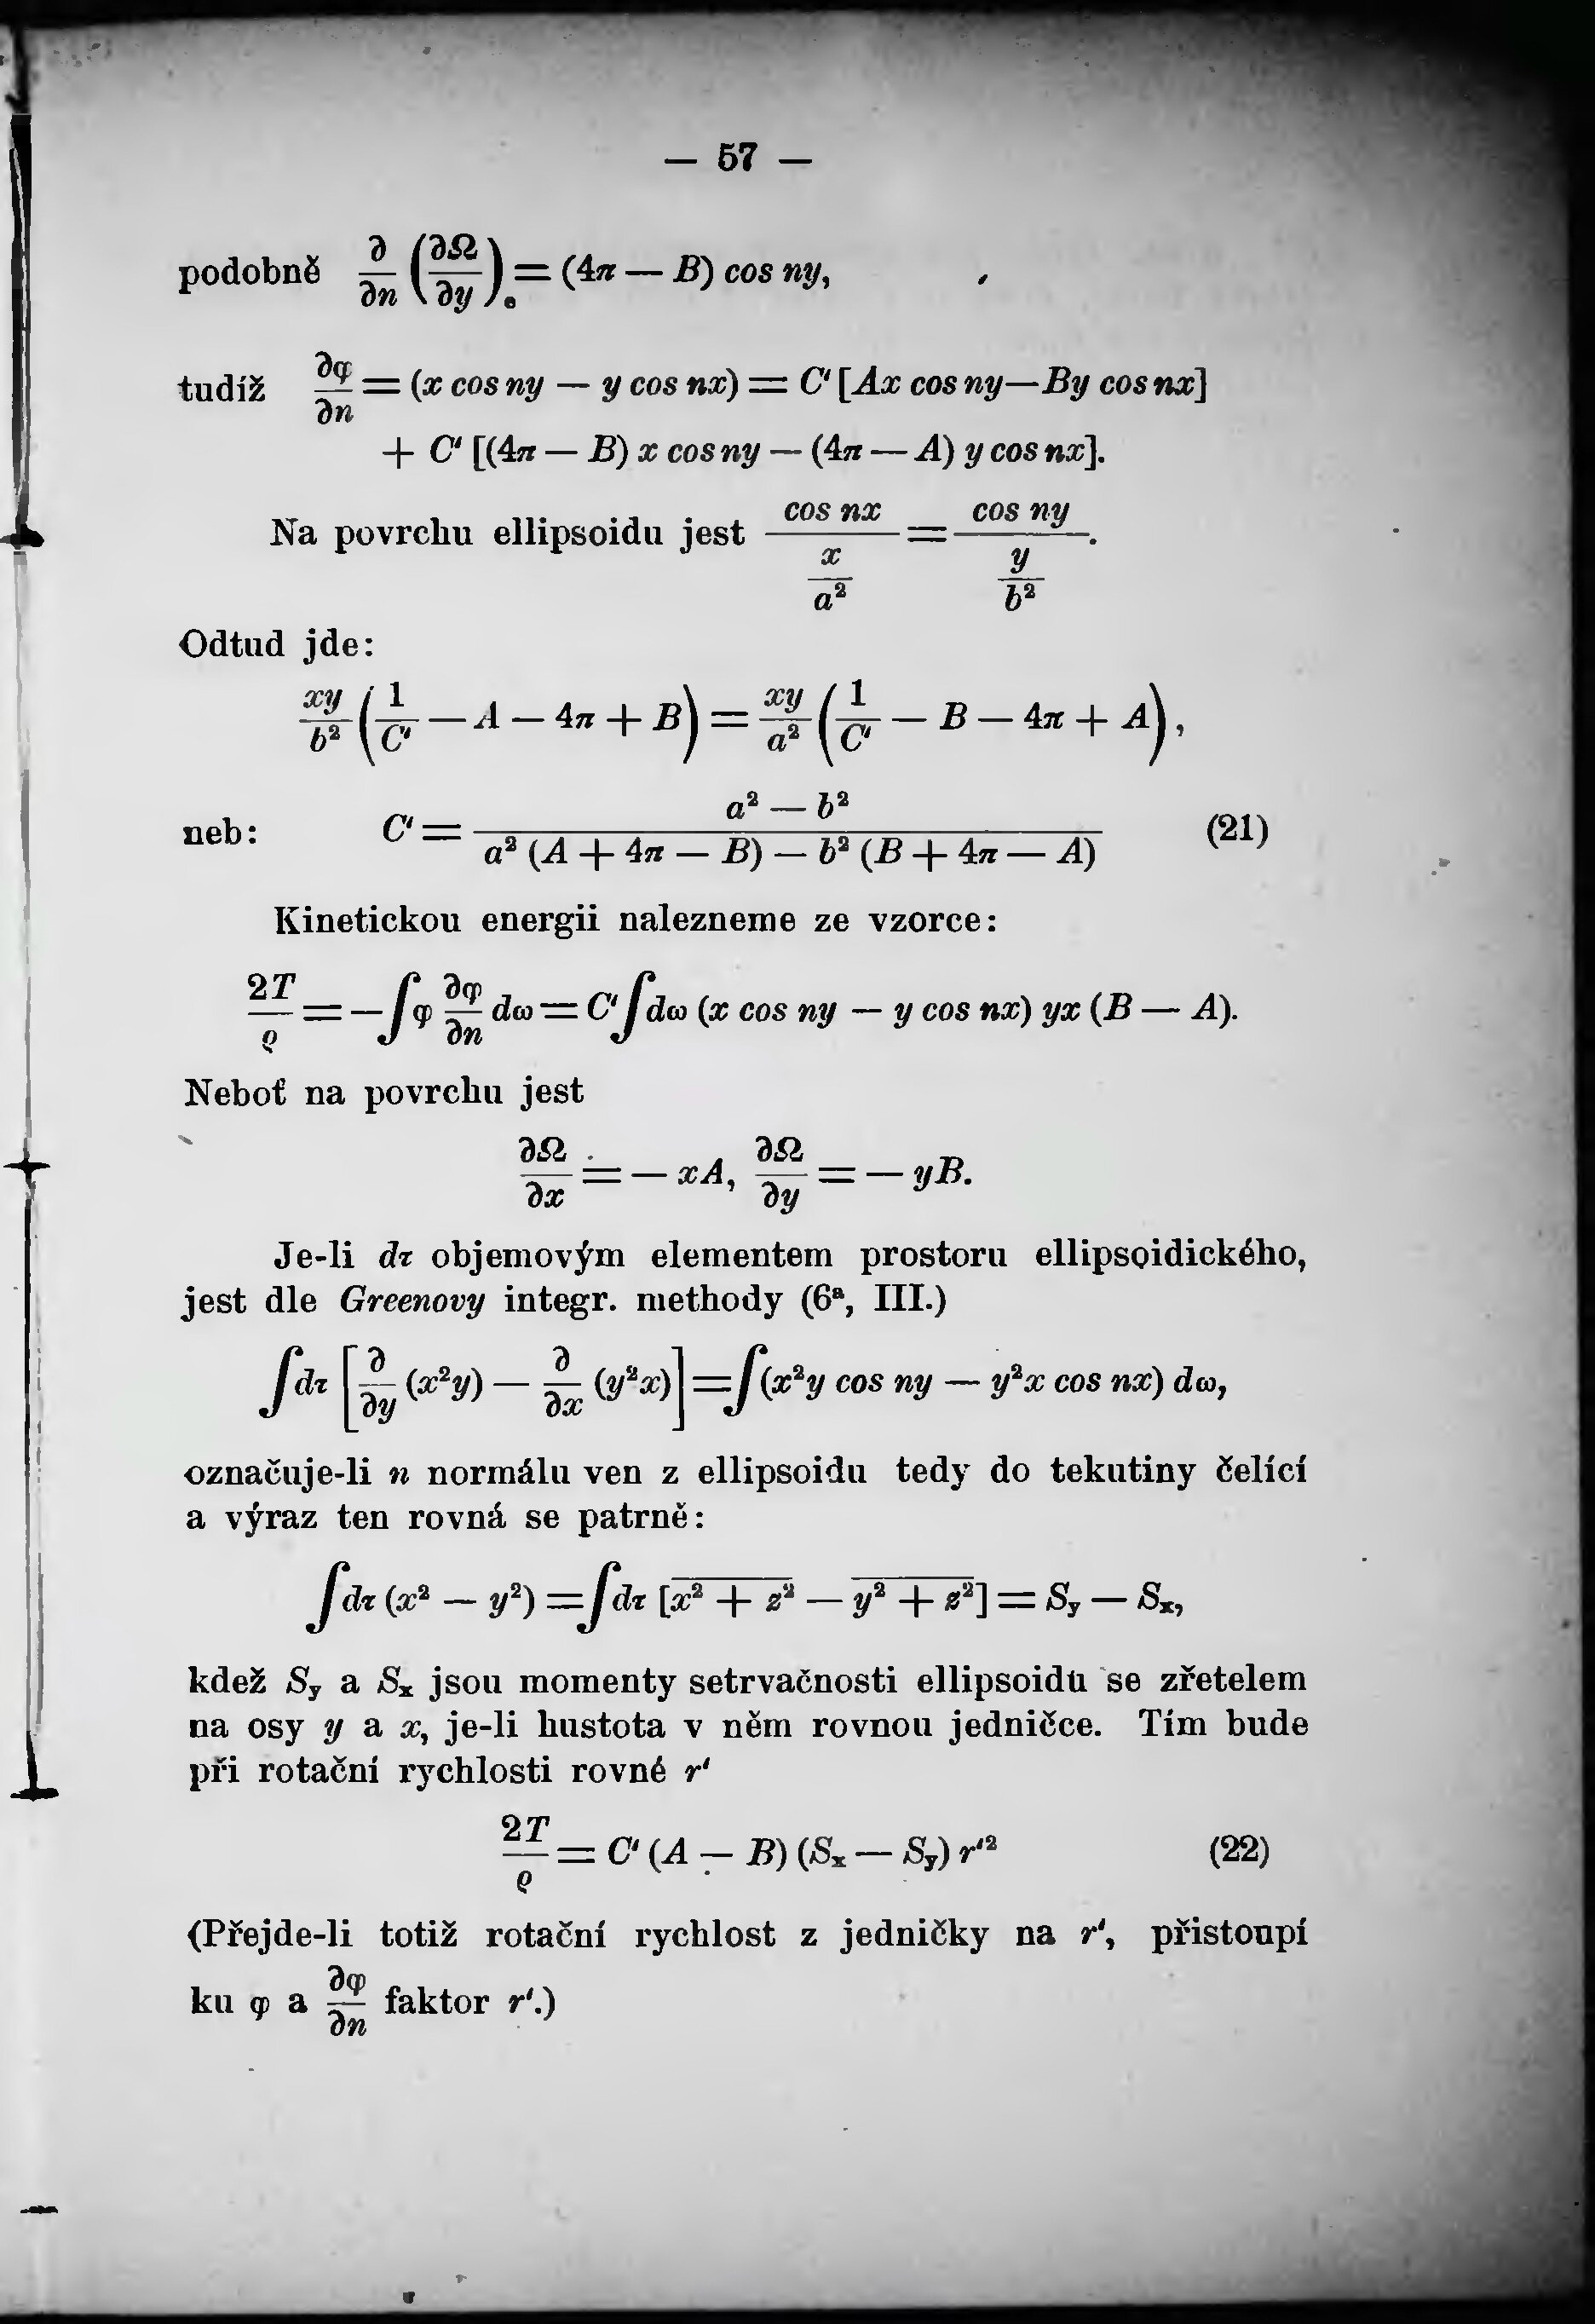 — 57 —
podobně ∂/∂n (∂Ω/∂y)ₑ = (4π — B) cos ny,
tudíž ∂φ/∂n = (x cos ny — y cos nx) = C' [Ax cos ny — By cos nx]
+ C' [(4π — B) x cos ny — (4π — A) y cos nx].
Na povrchu ellipsoidu jest cos nx / (x/a²) = cos ny / (y/b²).
Odtud jde:
xy/b² (1/C' — A — 4π + B) = xy/a² (1/C' — B — 4π + A),
neb: C' = (a² — b²) / (a² (A + 4π — B) — b² (B + 4π — A)) (21)
Kinetickou energii nalezneme ze vzorce:
2T/ϱ = — ∫φ ∂φ/∂n dω = C' ∫dω (x cos ny — y cos nx) yx (B — A).
Neboť na povrchu jest
∂Ω/∂x = — xA, ∂Ω/∂y = — yB.
Je-li dτ objemovým elementem prostoru ellipsoidického,
jest dle Greenovy integr. methody (6ª, III.)
∫dτ [∂/∂y (x²y) — ∂/∂x (y²x)] = ∫(x²y cos ny — y²x cos nx) dω,
označuje-li n normálu ven z ellipsoidu tedy do tekutiny čelící
a výraz ten rovná se patrně:
∫dτ (x² — y²) = ∫dτ [x² + z² — y² + z²] = Sy — Sx,
kdež Sy a Sx jsou momenty setrvačnosti ellipsoidu se zřetelem
na osy y a x, je-li hustota v něm rovnou jedničce. Tím bude
při rotační rychlosti rovné r'
2T/ϱ = C' (A — B) (Sx — Sy) r'² (22)
(Přejde-li totiž rotační rychlost z jedničky na r', přistoupí
ku φ a ∂φ/∂n faktor r'.)